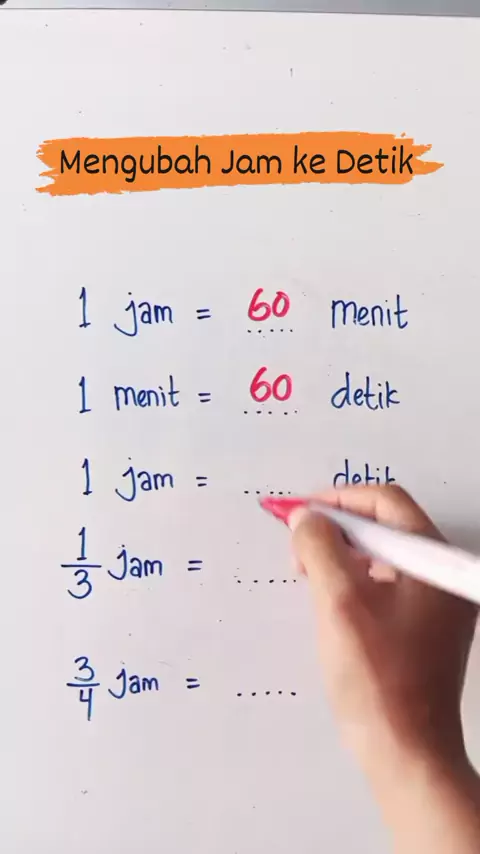 Mengubah Jam ke Detik
1 jam = 60 menit
1 menit = 60 detik
1 jam = ..... detik
1/3 jam = .....
3/4 jam = .....